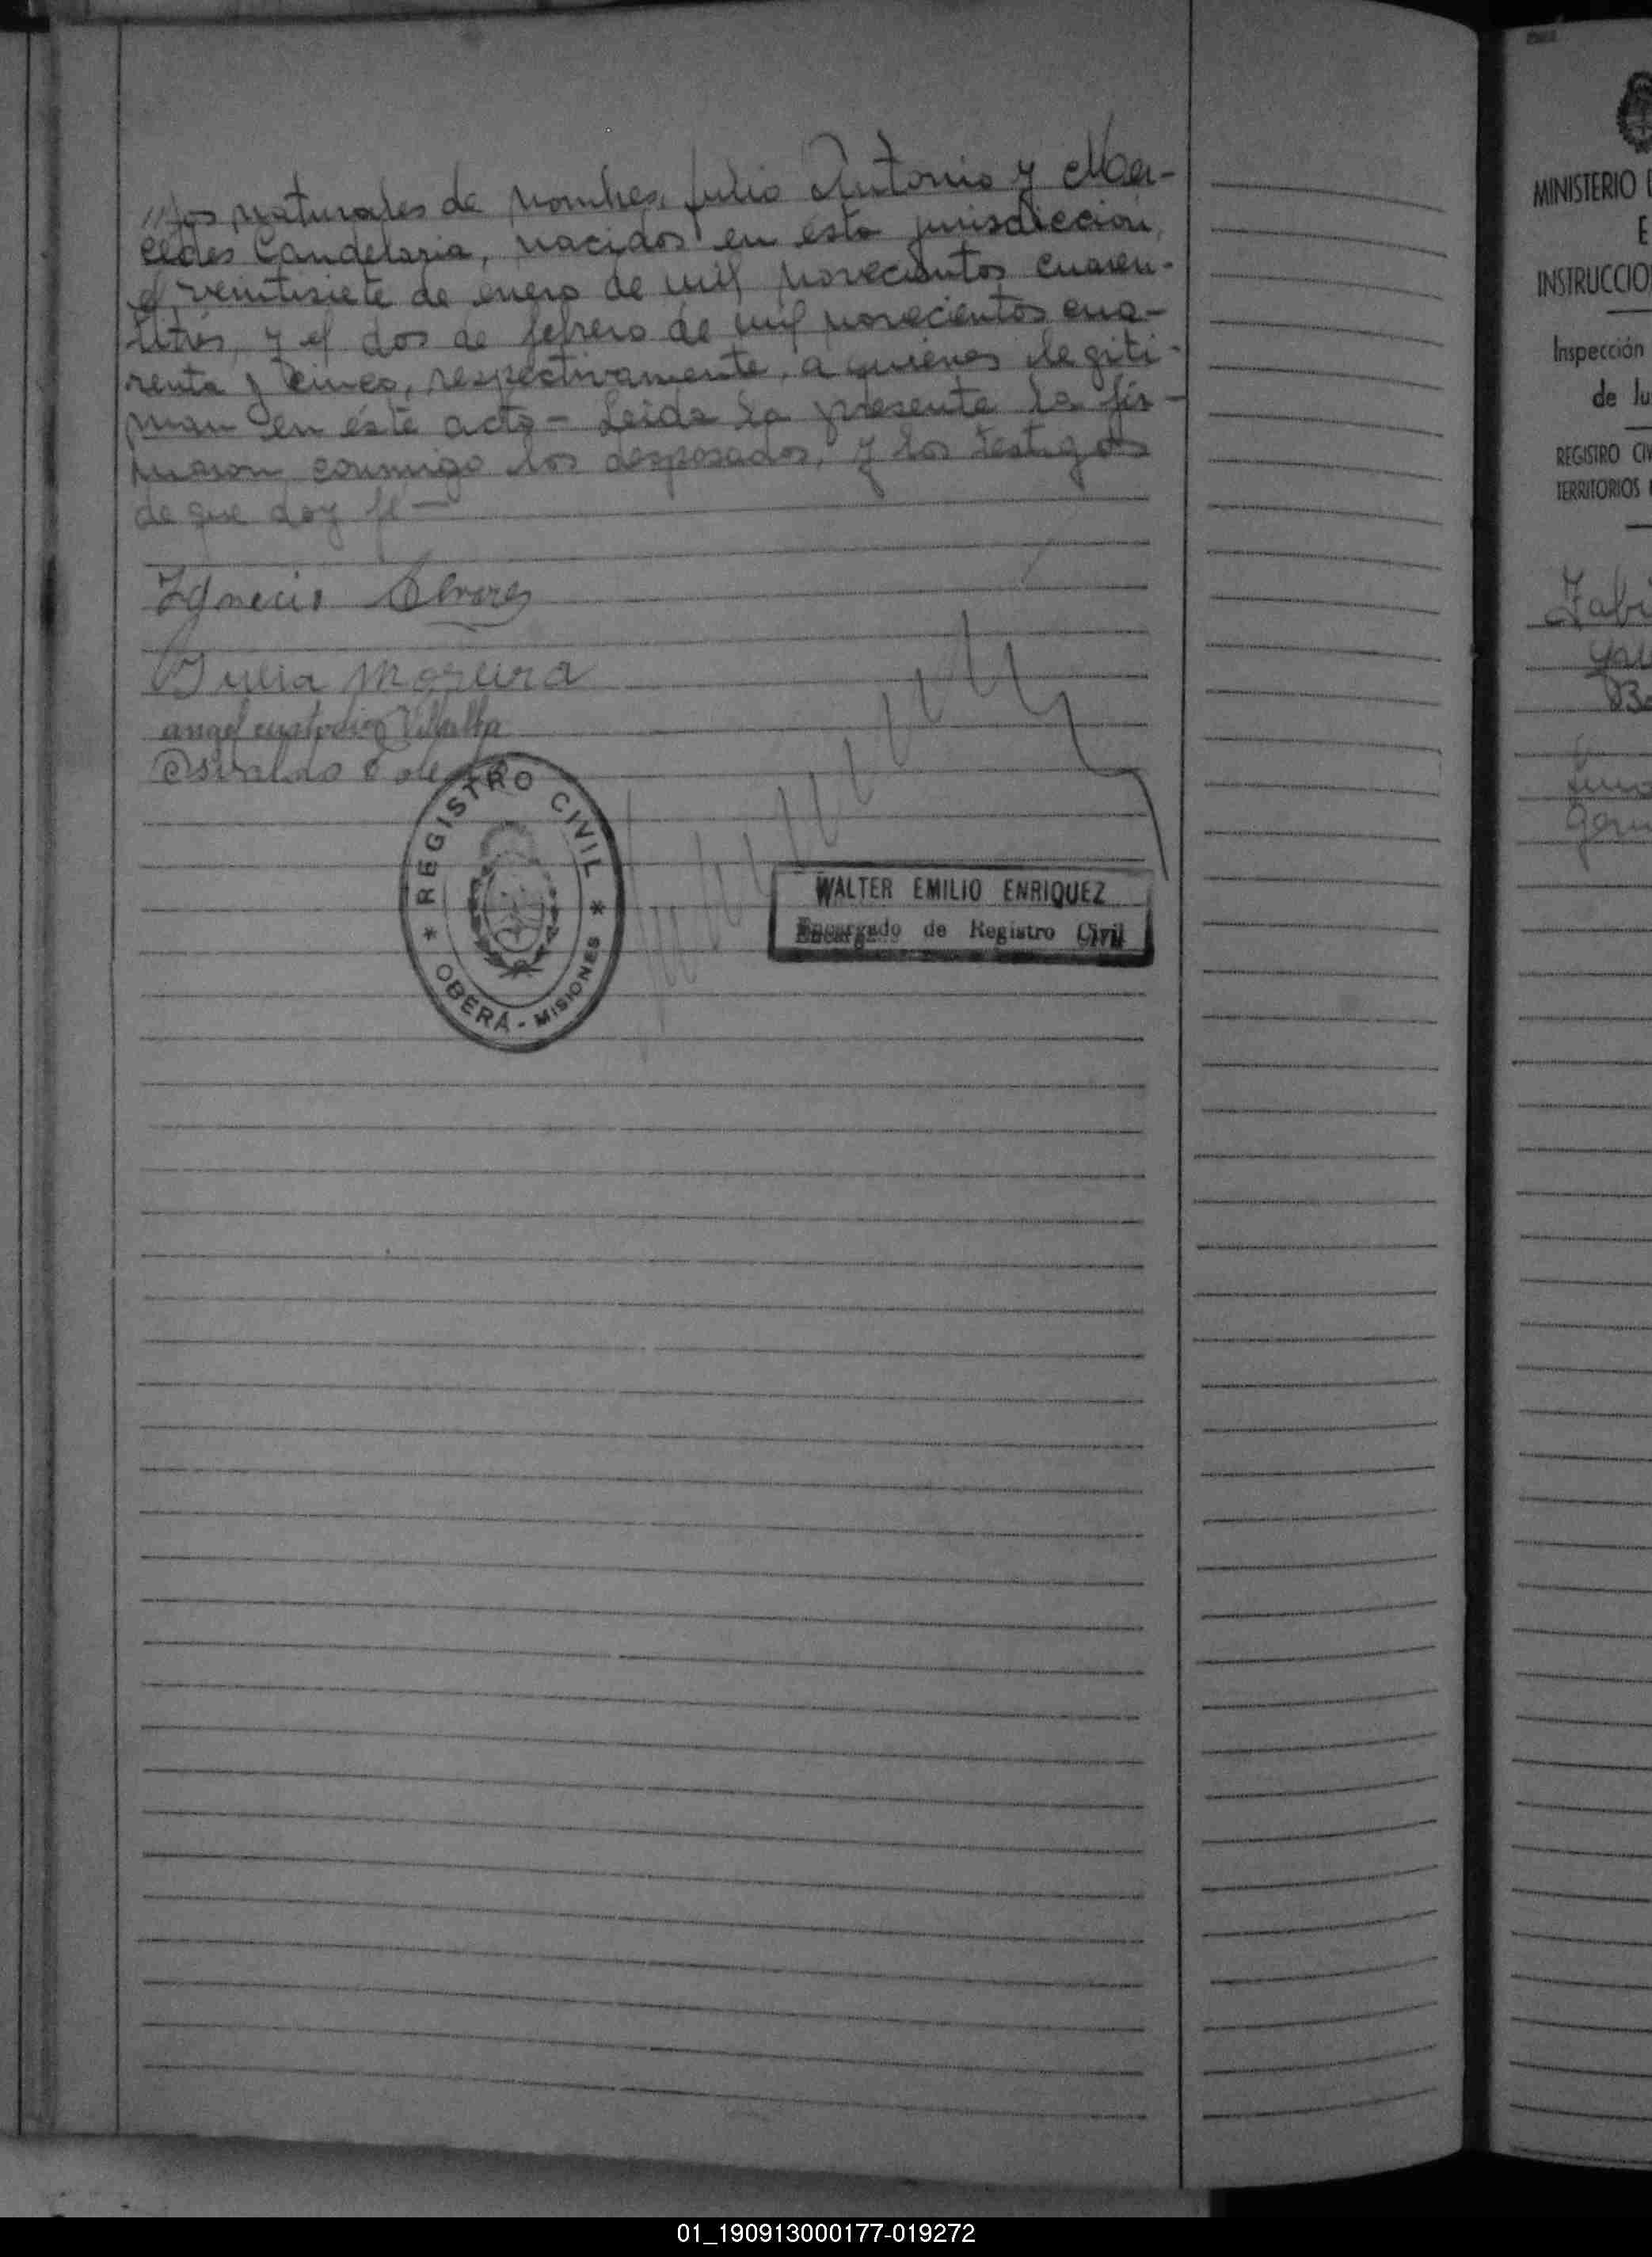 "jos naturales de nombres Julio Antonio y Mer-
cedes Candelaria, nacidos en ésta jurisdicción,
el veintisiete de enero de mil novecientos cuaren-
titrés, y el dos de febrero de mil novecientos cua-
renta y cinco, respectivamente, a quiénes legiti-
man en éste acto - Leida la presente la fir-
maron conmigo los desposados, y los testigos
de que doy fé -
Ignacio Alvarez
Julia Moreira
angel custodio Villalba
Osvaldo
* REGISTRO CIVIL *
OBERÁ - MISIONES
WALTER EMILIO ENRIQUEZ
Encargado de Registro Civil
MINISTERIO
E
INSTRUCCIO
Inspección
de Ju
REGISTRO CIV
TERRITORIOS
01_190913000177-019272